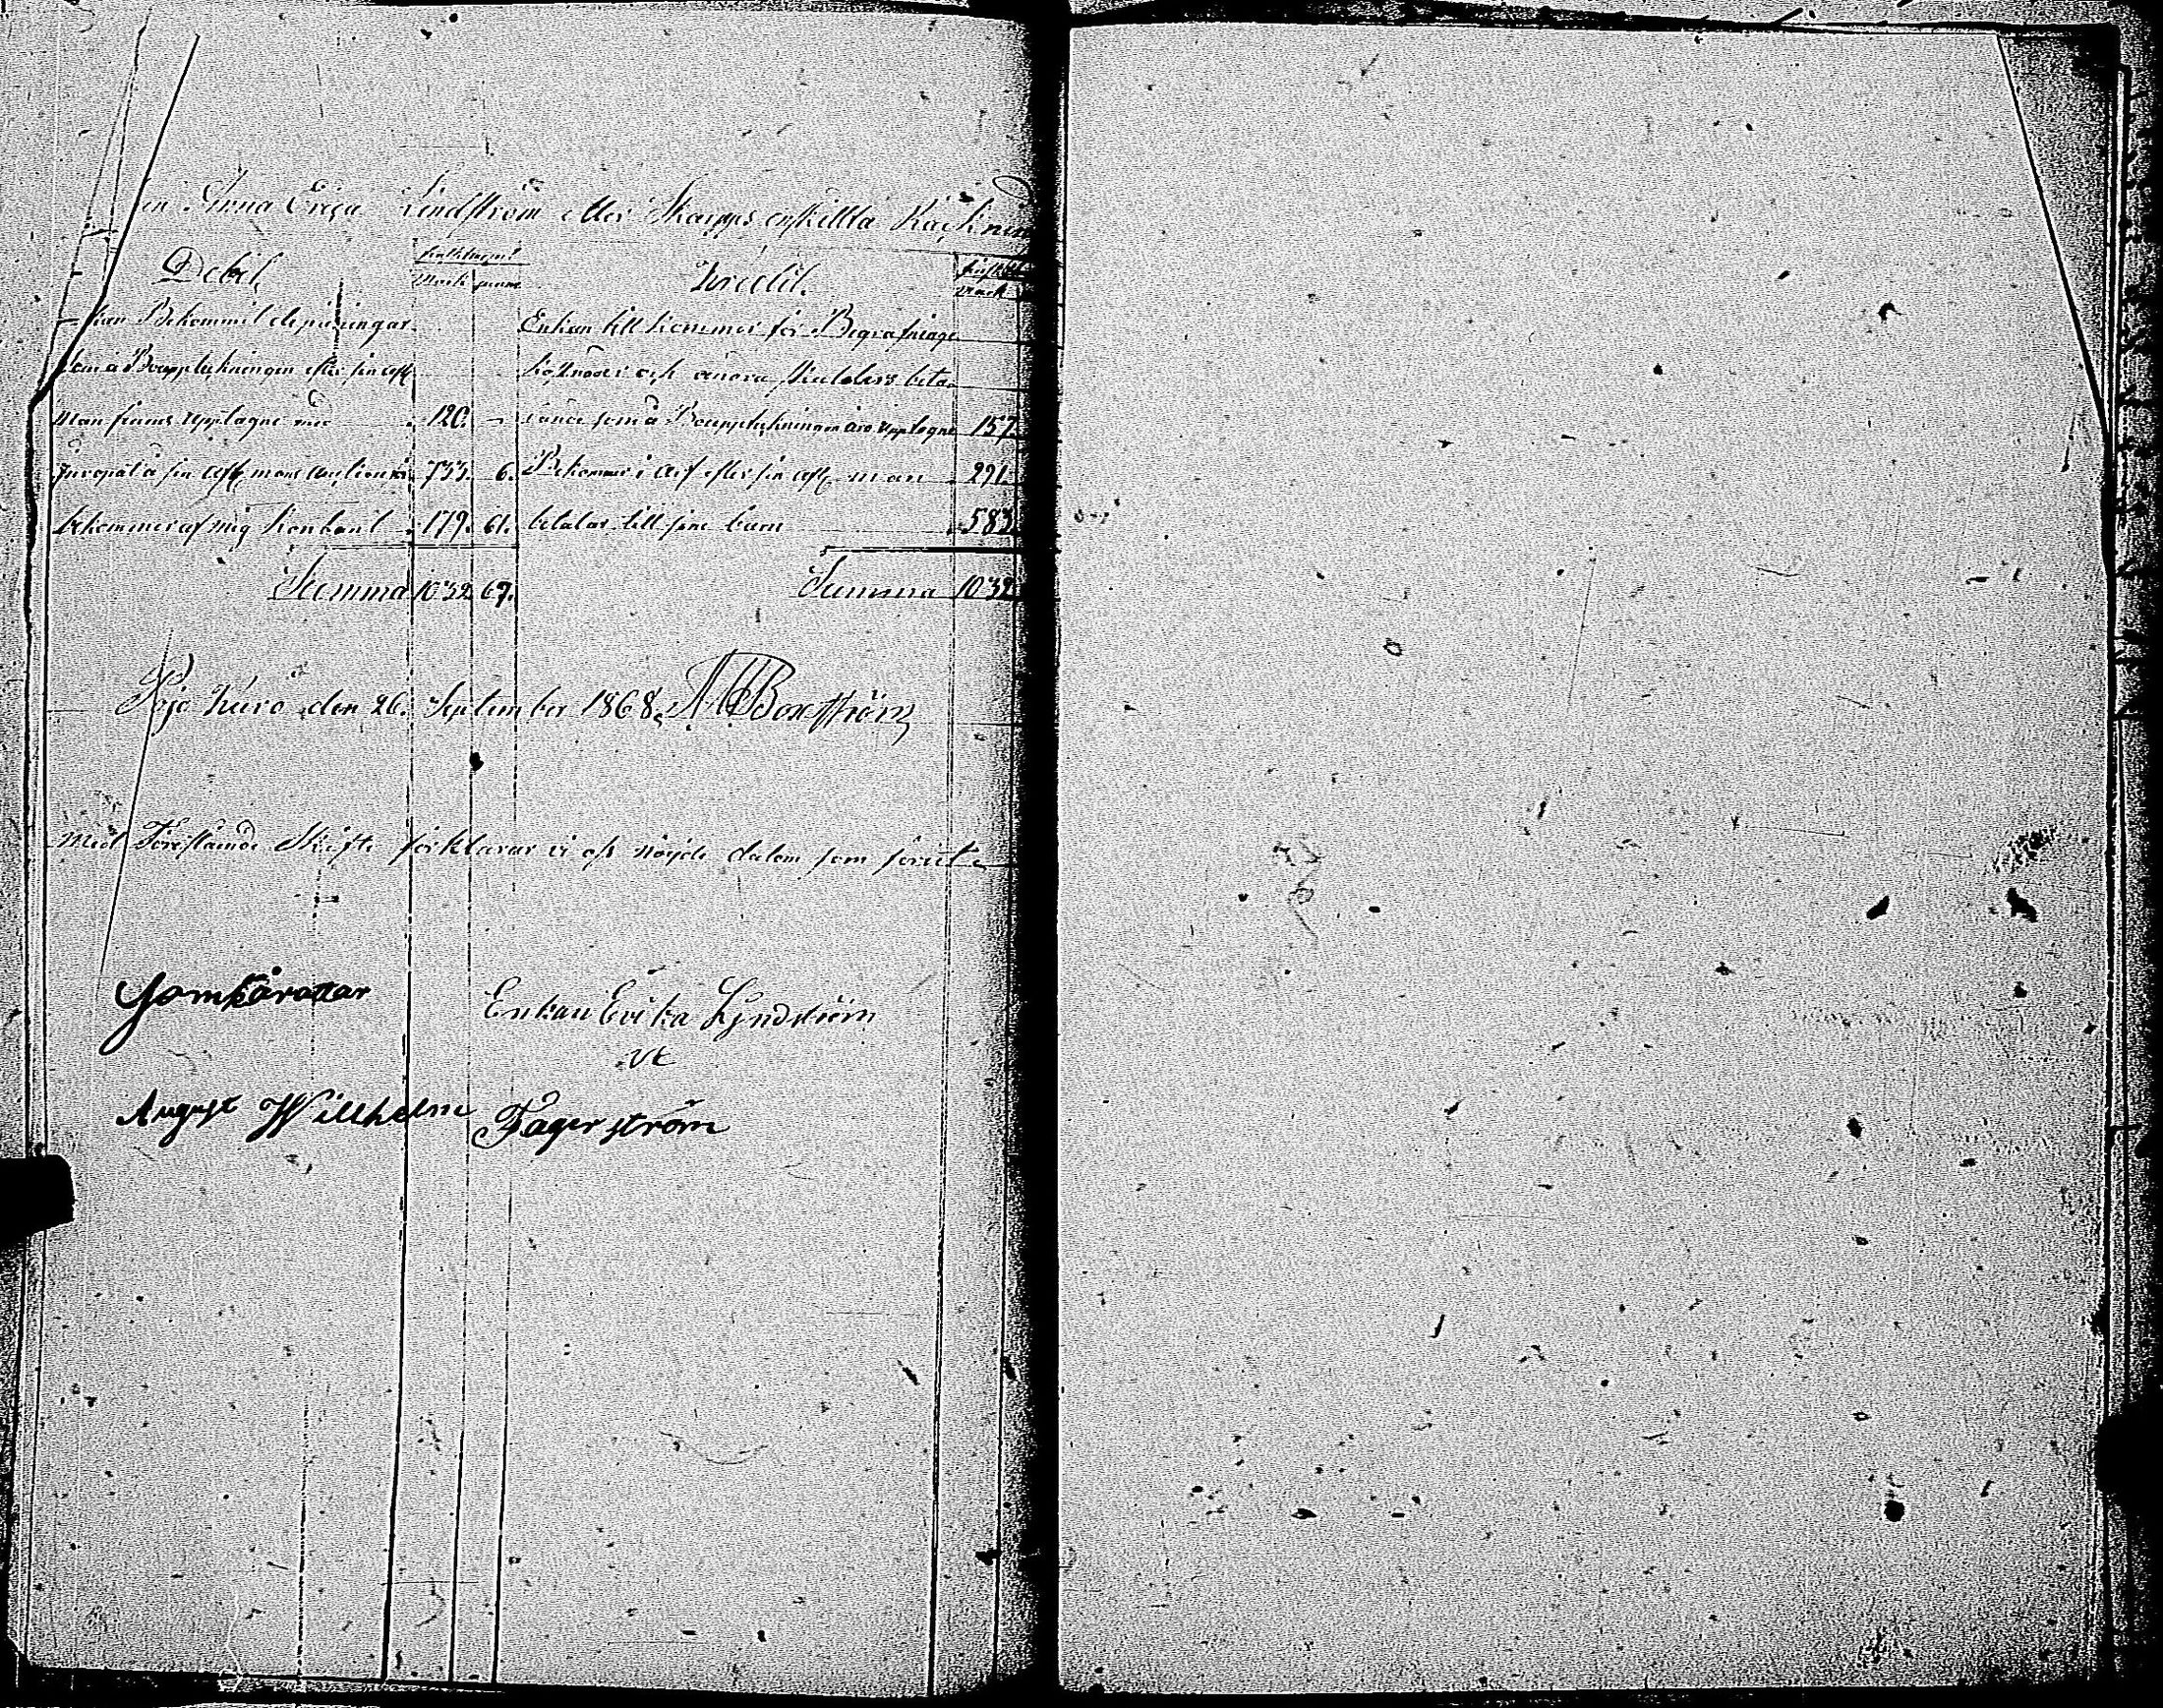 Anna Erica Lindström eller Skarpps enskillta Räkning
Debet. Kredit.
Mark penni Mark
kan Bekommit de päningar Enkan till kommer för Begrafnings
som å Bouppteckningen efter sin afl. kostnader och andra skulders beta
man finns upptagne med 120. — lande som å Bouppteckningen äro upptagne 157
Inropat å sin afl. mans auction 733. 6. Bekommer i arf efter sin afl. man 291
bekommer af mig Kontant 179. 61. betalar till sine barn 583
Summa 1032 67. Summa 1032
Pojo Kuro den 26. September 1868. Boxström
Med Föreståénde Skifte förklarar vi oss nöijde datom som förut
Gamkåroxar
Enkan Erika Lyndström
August Willhelm Fagerström